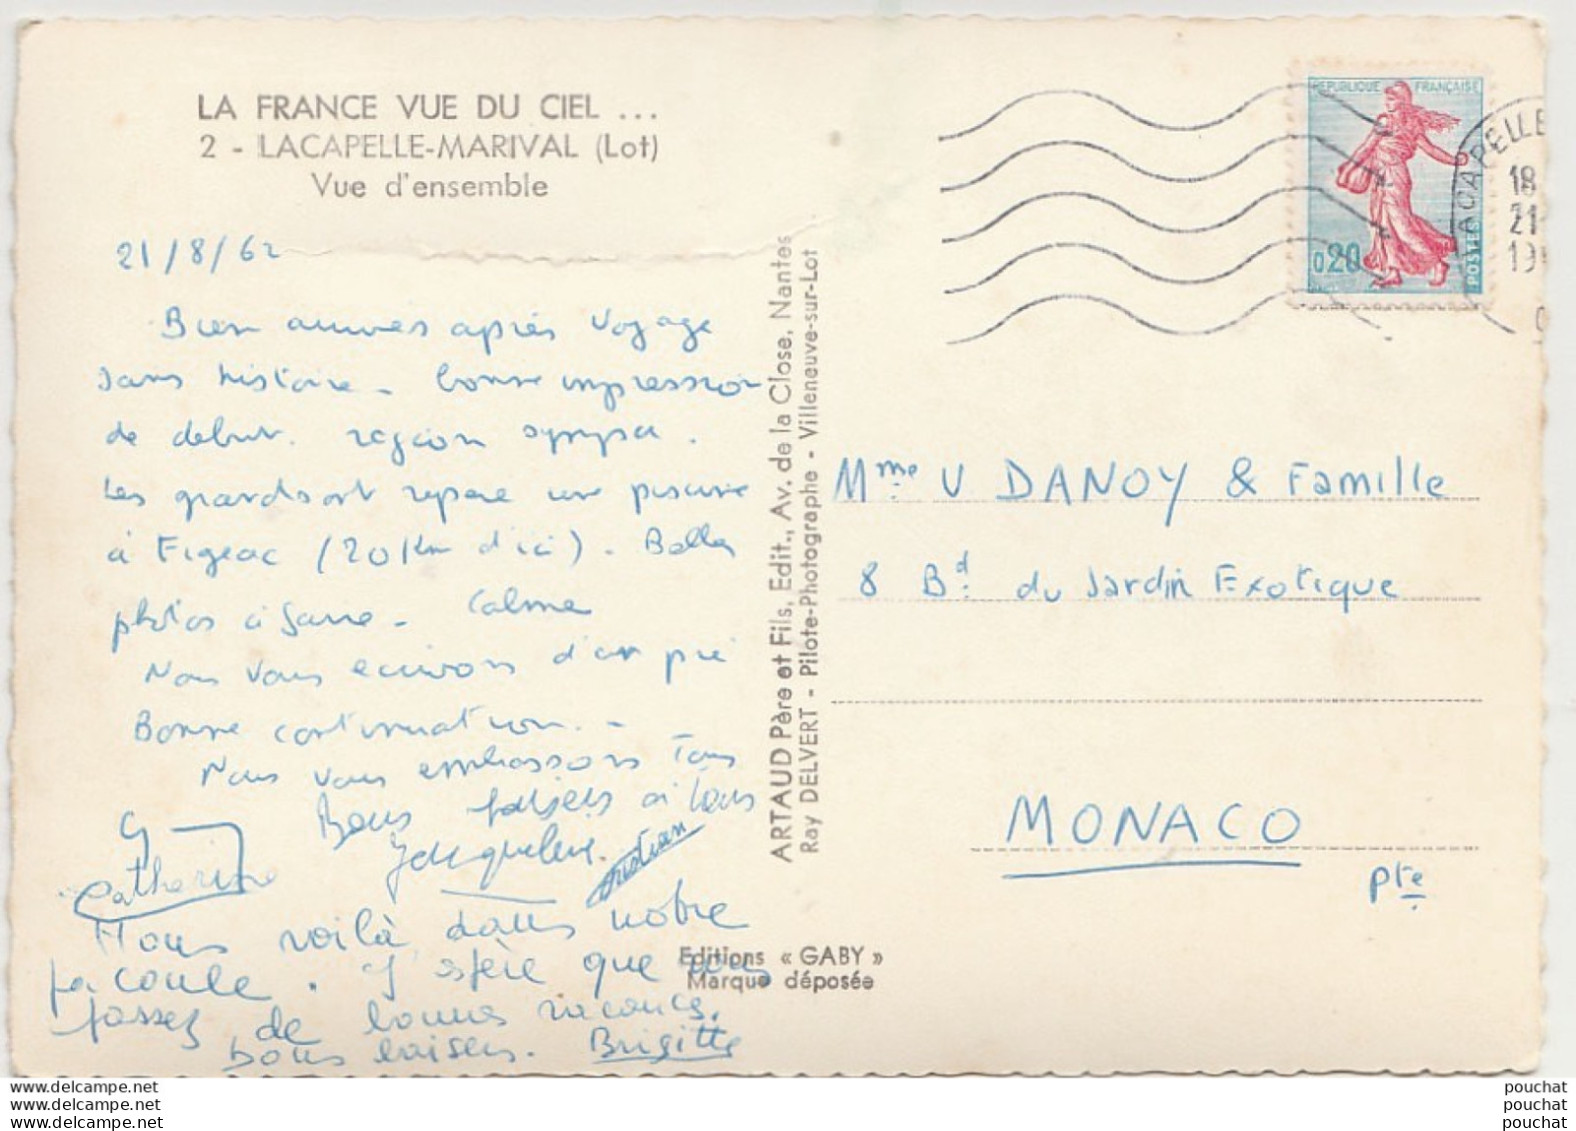 LA FRANCE VUE DU CIEL ...
2 - LACAPELLE-MARIVAL (Lot)
Vue d'ensemble
21/8/62
Bien arrivés après voyage
sans histoire - bonne impression
de début. région sympa.
Les grands ont repéré une piscine
à Figeac (20 Km d'ici). Belles
photos à faire - Calme
Nous vous écrivons d'un pré
Bonne continuation. -
Nous vous embrassons Tous
G
Bons baisers à tous
Jacqueline.
Christian
Catherine
Nous voilà dans notre
. J'espère que vous
passez de bonnes vacances.
bons baisers. Brigitte
ARTAUD Père et Fils, Edit., Av. de la Close, Nantes
Ray DELVERT - Pilote-Photographe - Villeneuve-sur-Lot
Editions « GABY »
Marque déposée
REPUBLIQUE FRANÇAISE
0,20
POSTES
LACAPELLE
18
21
19
Mme V DANOY & Famille
8 Bd du Jardin Exotique
MONACO
Pte
delcampe.net
delcampe.net
delcampe.net
pouchat
pouchat
pouchat